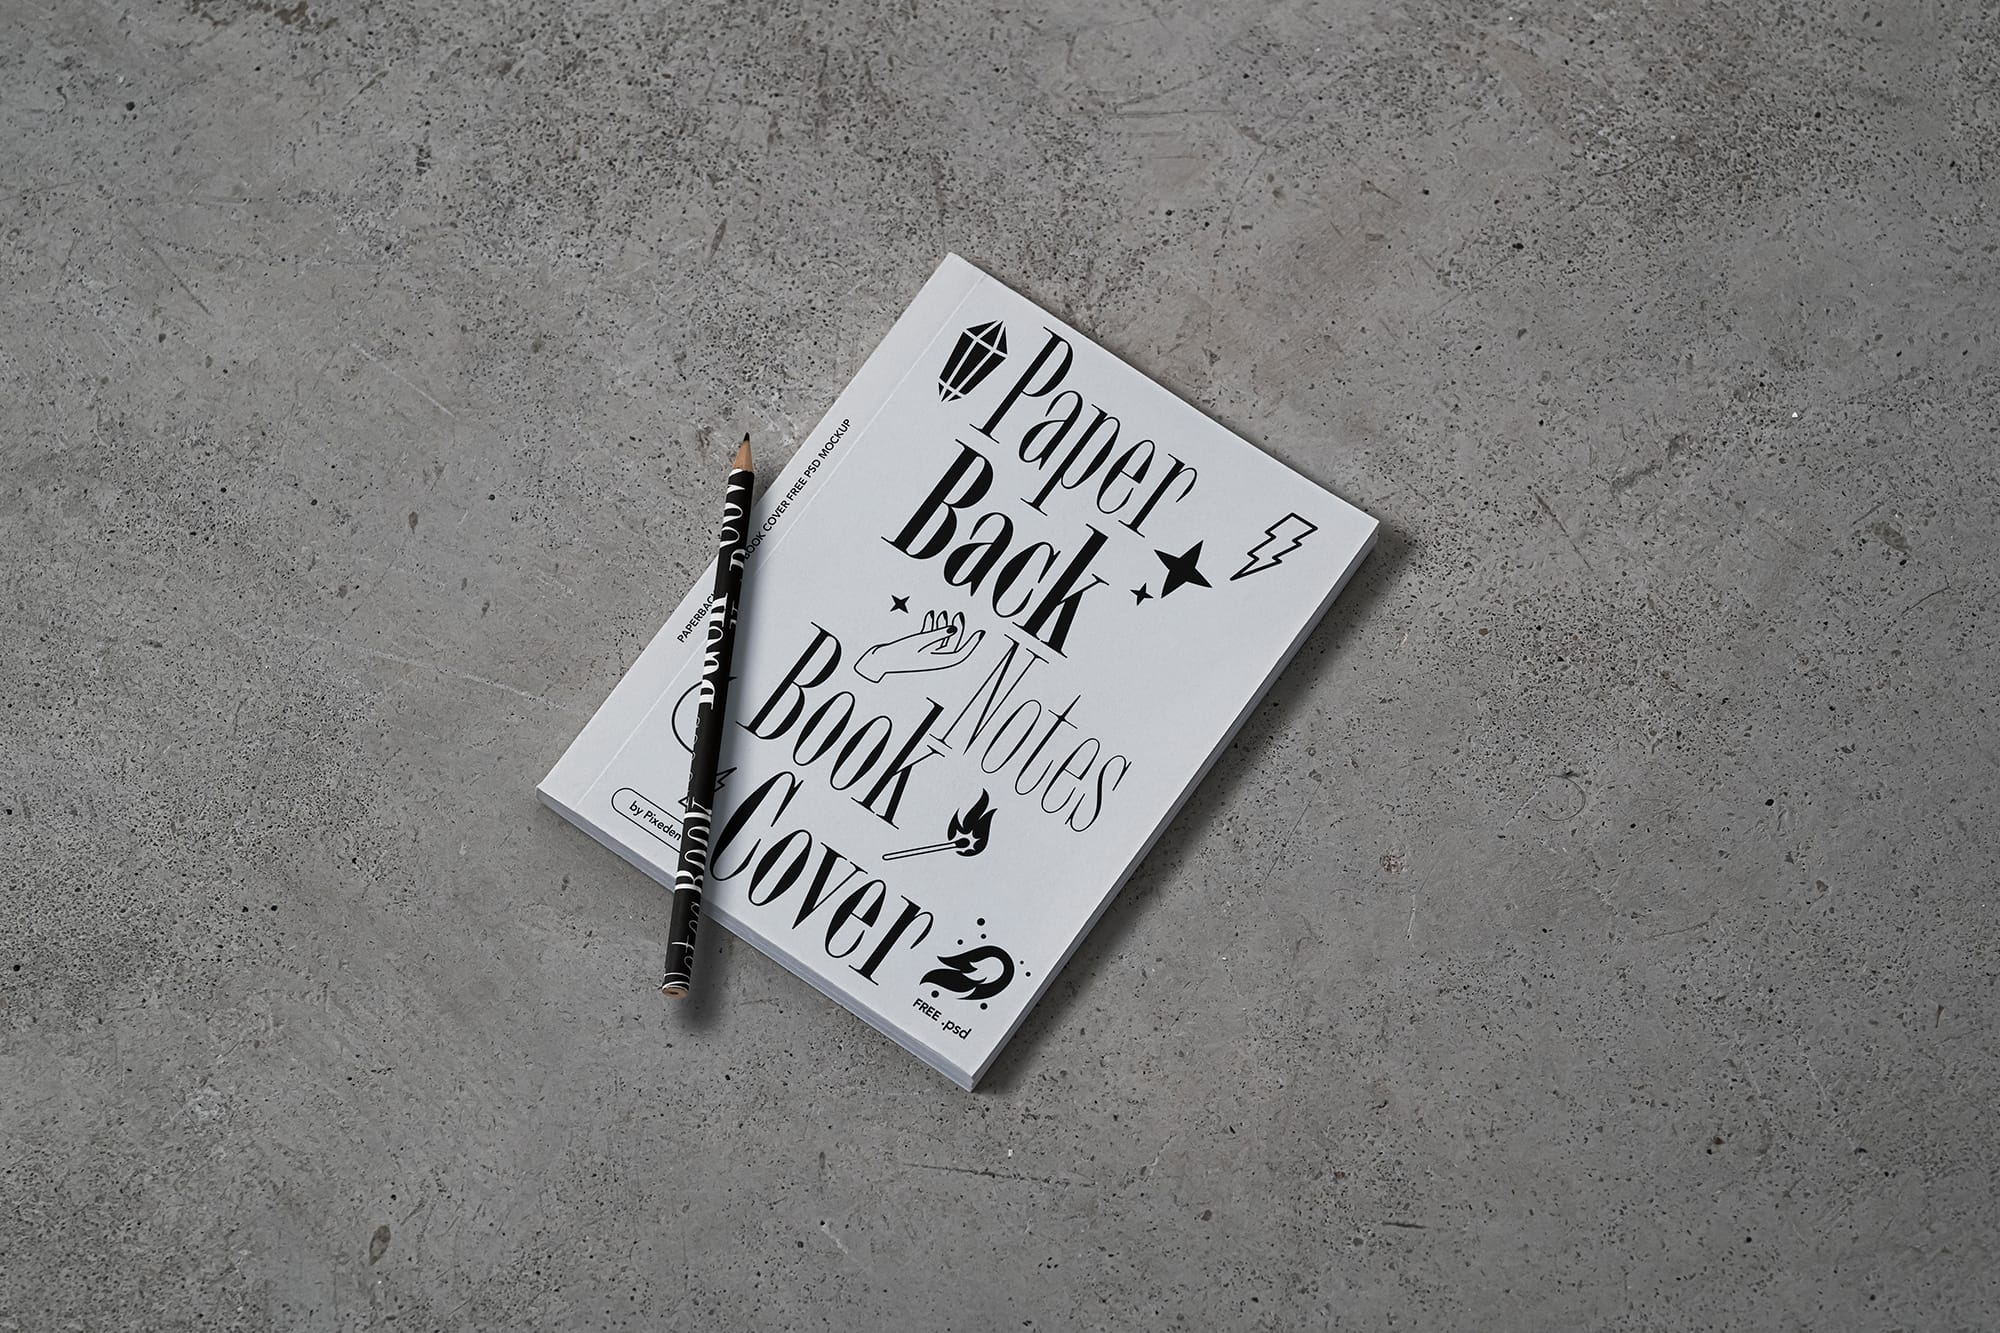 Paper
Back
Notes
Book
Cover
PAPERBACK BOOK COVER FREE PSD MOCKUP
by Pixeden
FREE .psd
Book